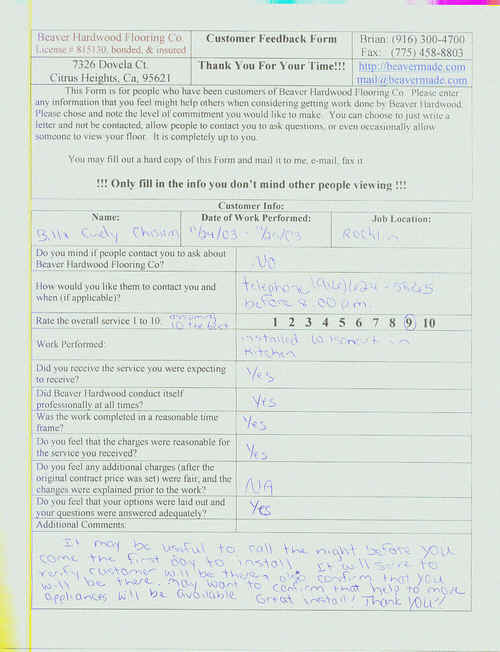 Beaver Hardwood Flooring Co.
License # 815130, bonded, & insured
Customer Feedback Form
Brian: (916) 300-4700
Fax: (775) 458-8803
7326 Dovela Ct.
Citrus Heights, Ca, 95621
Thank You For Your Time!!!
http://beavermade.com
mail@beavermade.com
This Form is for people who have been customers of Beaver Hardwood Flooring Co. Please enter
any information that you feel might help others when considering getting work done by Beaver Hardwood.
Please chose and note the level of commitment you would like to make. You can choose to just write a
letter and not be contacted, allow people to contact you to ask questions, or even occasionally allow
someone to view your floor. It is completely up to you.
You may fill out a hard copy of this Form and mail it to me, e-mail, fax it.
!!! Only fill in the info you don't mind other people viewing !!!
Customer Info:
Name: Date of Work Performed: Job Location:
11/24/03 - Rocklin
Do you mind if people contact you to ask about
Beaver Hardwood Flooring Co.?
NO
How would you like them to contact you and
when (if applicable)?
telephone (916) 624-
before 8:00 p.m.
Rate the overall service 1 to 10: assuming
10 the best
1 2 3 4 5 6 7 8 9 10
Work Performed:
installed in
kitchen
Did you receive the service you were expecting
to receive?
Yes
Did Beaver Hardwood conduct itself
professionally at all times?
Yes
Was the work completed in a reasonable time
frame?
Yes
Do you feel that the charges were reasonable for
the service you received?
Yes
Do you feel any additional charges (after the
original contract price was set) were fair, and the
changes were explained prior to the work?
NA
Do you feel that your options were laid out and
your questions were answered adequately?
Yes
Additional Comments:
It may be useful to call the night before you
come the first day to install. It will serve to
verify customer will be there, also confirm that you
will be there. May want to confirm that help to move
appliances will be available. Great install! Thank you!!